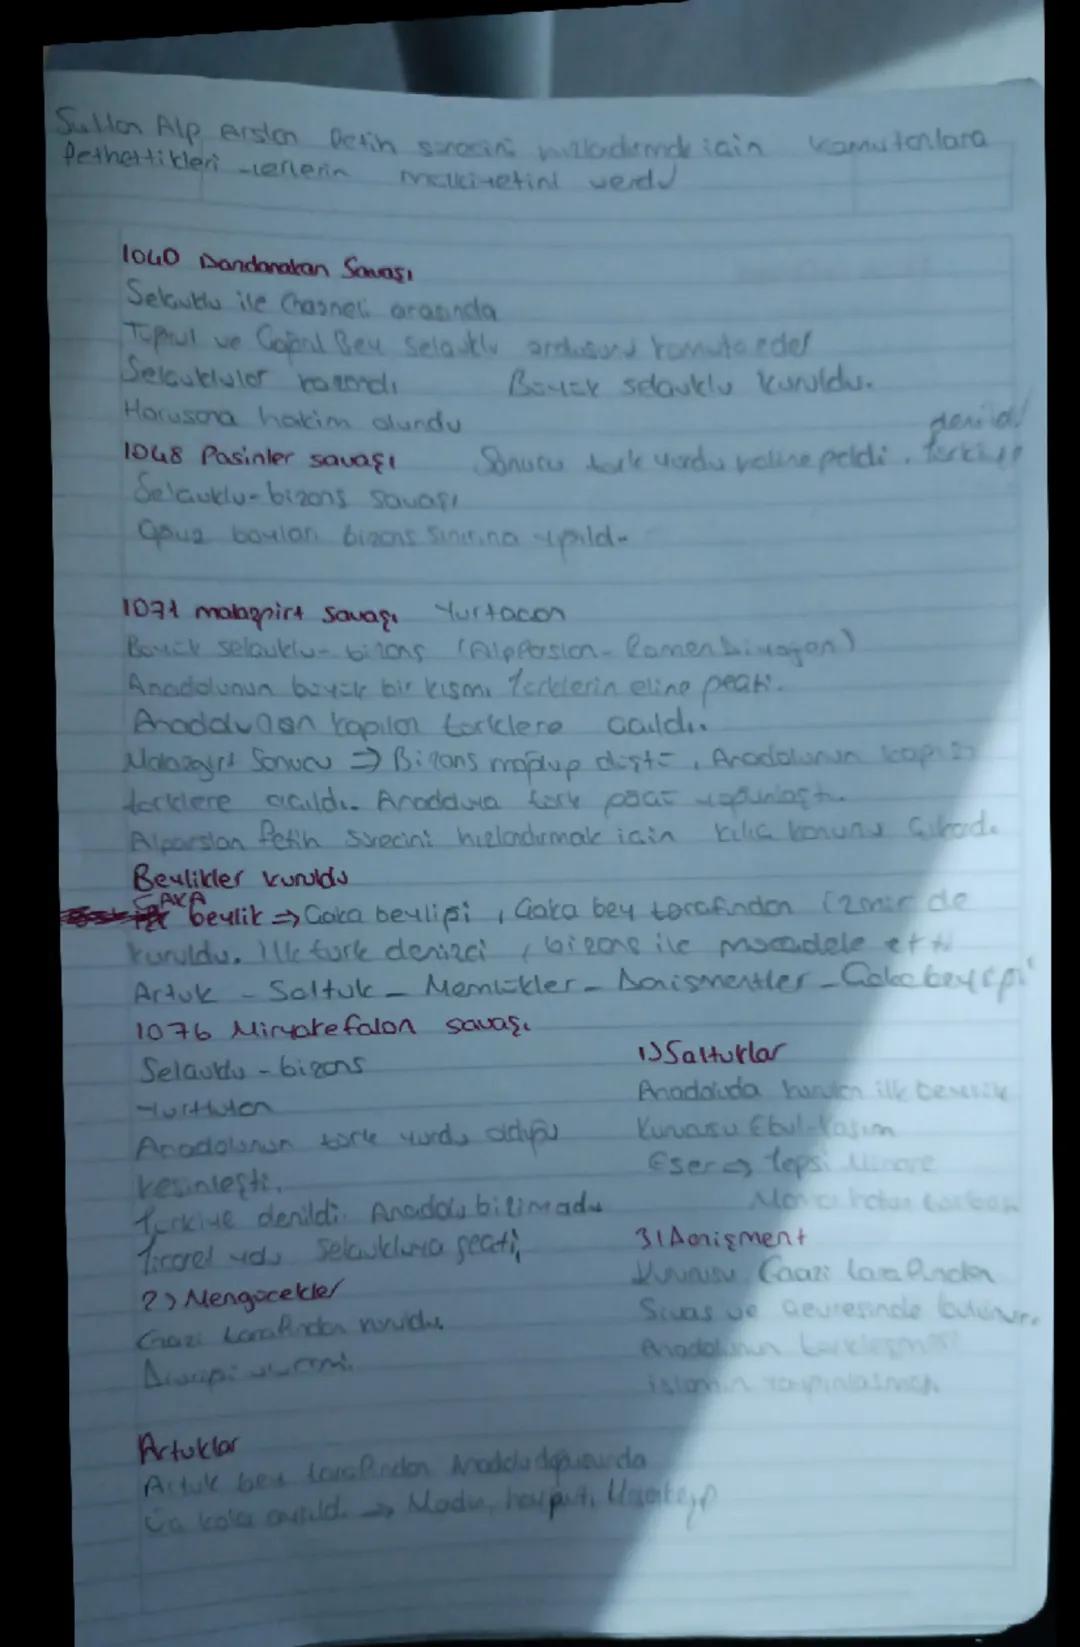 Sultan Alp Arslan fetih sürecini hızladırmak için komutanlara
fethettikleri yerlerin mülkiyetini verdi
1040 Dandanakan Savaşı
Selçuklu ile Gazneli arasında
Tuğrul ve Çağrıl Bey Selçuklu ordusunu komuta eder
Selçuklular kazandı Büyük selçuklu kuruldu.
Horusana hakim olundu
1048 Pasinler savaşı Sonucu türk yurdu haline geldi. Türkiye
denildi
Selçuklu-bizans savaşı
Oğuz boyları bizans sınırına yığıldı
1071 malazgirt Savaşı Yurtaçan
Büyük selçuklu-bizans (AlpArslan-Romen Diyojen)
Anadolunun büyük bir kısmı Türklerin eline geçti.
Anadolunun kapıları türklere açıldı.
Malazgirt Sonucu ⇒ Bizans mağlup düştü, Anadolunun kapısı
türklere açıldı. Anadoluya türk göçü yoğunlaştı.
Alparslan fetih sürecini hızlandırmak için kılıç kanunu çıkardı.
Beylikler kuruldu
ÇAKA
beylik ⇒ Çaka beyliği, Çaka bey tarafından İzmir de
kuruldu. İlk türk denizci, bizans ile mücadele etti
Artuk - Saltuk - Memlükler - Danişmentler - Çaka beyliği
1076 Miryokefalon savaşı
Selçuklu - bizans
Yurttutan
Anadolunun türk yurdu olduğu
kesinleşti.
Türkiye denildi. Anadolu bitimadu
Ticaret yolu Selçukluya geçti
2) Mengücekler
Gazi tarafından kuruldu.
Divriği
1) Saltuklar
Anadoluda kurulan ilk beylik
Kurucusu Ebul-Kasım
Eser ⇒ Tepsi Minare
Mama hatun türbesi
3) Danişment
Kurucusu Gaazi tarafından
Sivas ve çevresinde bulunur.
Anadolunun türkleşmesi
islamın yaygınlaşması
Artuklar
Artuk bey tarafından Anadolu doğusunda
Üç kola ayrıldı → Mardin, harput, Hasankeyf